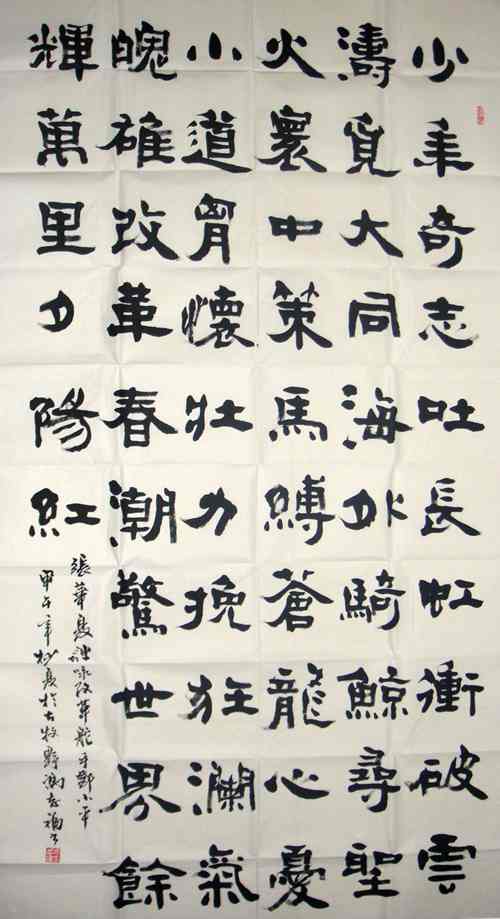 少年奇志吐長虹衝破雲
濤覓大同海外騎鯨尋聖
火寰中策馬縛蒼龍心憂
小道胷懷壯力挽狂瀾氣
魄雄改革春潮驚世界餘
輝萬里夕陽紅
張華夏詩詠改革舵手鄧小平
甲午年杪夏於古牧野馮志福書